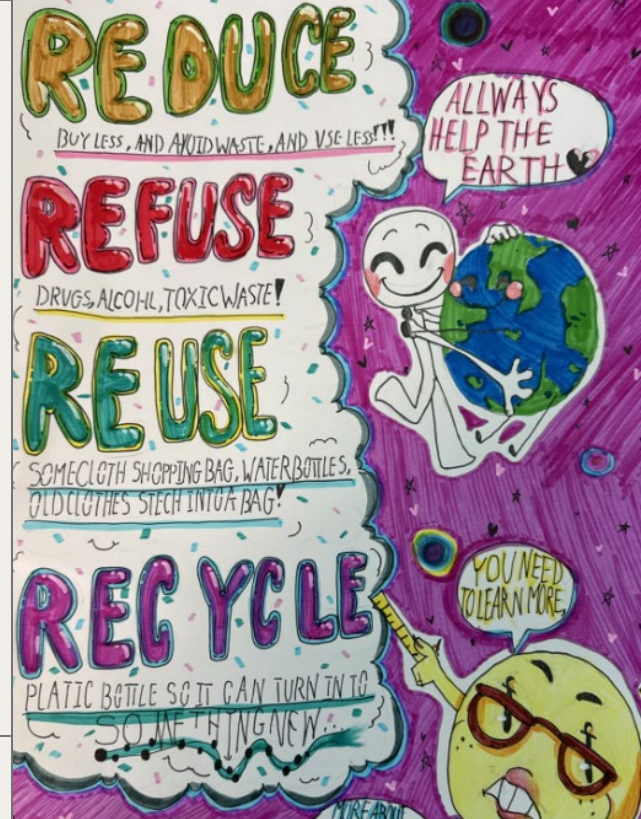 REDUCE
BUY LESS, AND AVOID WASTE, AND USE LESS!!!
REFUSE
DRUGS, ALCOHL, TOXIC WASTE!
REUSE
SOMECLOTH SHOPPING BAG, WATER BOTTLES,
OLD CLOTHES STECH INTO A BAG!
RECYCLE
PLATIC BOTTLE SO IT CAN TURN IN TO
SOMETHING NEW...
ALLWAYS
HELP THE
EARTH
YOU NEED
TO LEARN MORE,
MORE ABOUT